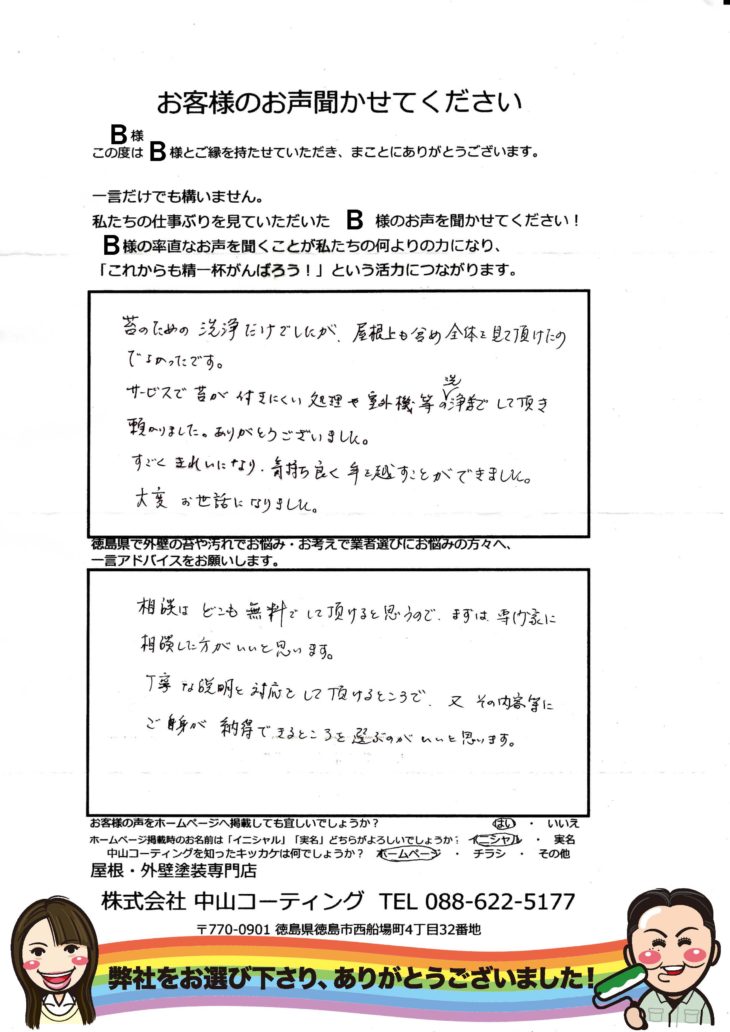 お客様のお声聞かせてください
B様
この度は B 様とご縁を持たせていただき、まことにありがとうございます。
一言だけでも構いません。
私たちの仕事ぶりを見ていただいた B 様のお声を聞かせてください！
B様の率直なお声を聞くことが私たちの何よりの力になり、
「これからも精一杯がんばろう！」という活力につながります。
苔のための洗浄だけでしたが、屋根上も含め全体を見て頂けたの
でよかったです。
サービスで苔が付きにくい処理や室外機等の洗浄までして頂き
頼かりました。ありがとうございました。
すごくきれいになり、気持ち良く年を越すことができました。
大変お世話になりました。
徳島県で外壁の苔や汚れでお悩み・お考えで業者選びにお悩みの方々へ、
一言アドバイスをお願いします。
相談はどこも無料でして頂けると思うので、まずは、専門家に
相談した方がいいと思います。
丁寧な説明と対応をして頂けるところで、又その内容等に
ご自身が納得できるところを選ぶのがいいと思います。
お客様の声をホームページへ掲載しても宜しいでしょうか？ はい ・ いいえ
ホームページ掲載時のお名前は「イニシャル」「実名」どちらがよろしいでしょうか？ イニシャル ・ 実名
中山コーティングを知ったキッカケは何でしょうか？ ホームページ ・ チラシ ・ その他
屋根・外壁塗装専門店
株式会社 中山コーティング TEL 088-622-5177
〒770-0901 徳島県徳島市西船場町4丁目32番地
弊社をお選び下さり、ありがとうございました！